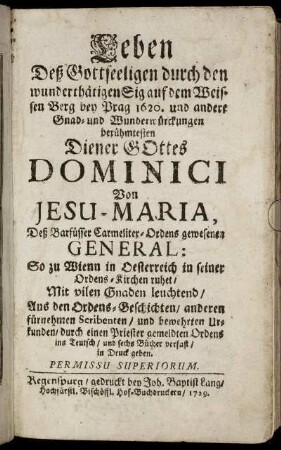 Leben
Deß Gottseeligen durch den
wunderthätigen Sig auf dem Weis-
sen Berg bey Prag 1620. und andere
Gnad- und Wunderwürckungen
berühmtesten
Diener GOttes
DOMINICI
Von
JESU-MARIA,
Deß Barfüsser Carmeliter-Ordens gewesenen
GENERAL:
So zu Wienn in Oesterreich in seiner
Ordens-Kirchen ruhet/
Mit vilen Gnaden leuchtend/
Aus den Ordens-Geschichten/ anderen
fürnemen Scribenten/ und bewehrten Ur-
kunden/ durch einen Priester gemeldten Ordens
ins Teutsch/ und sechs Bücher verfaßt/
in Druck geben.
PERMISSU SUPERIORUM.
Regenspurg/ gedruckt bey Joh. Baptist Lang/
Hochfürstl. Bischöffl. Hof-Buchdruckern/ 1729.